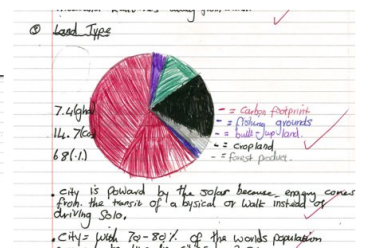 ② Land Type
7.4 (gha)
14.7 (
68 (%)
- = Carbon footprint
- = fishing grounds
- = built-up land.
- = cropland
- = forest product.
• City is poward by the solar because energy comes
from. the transit of a bysical or walk instead of
driving solo.
• City = with 70-80% of the worlds population